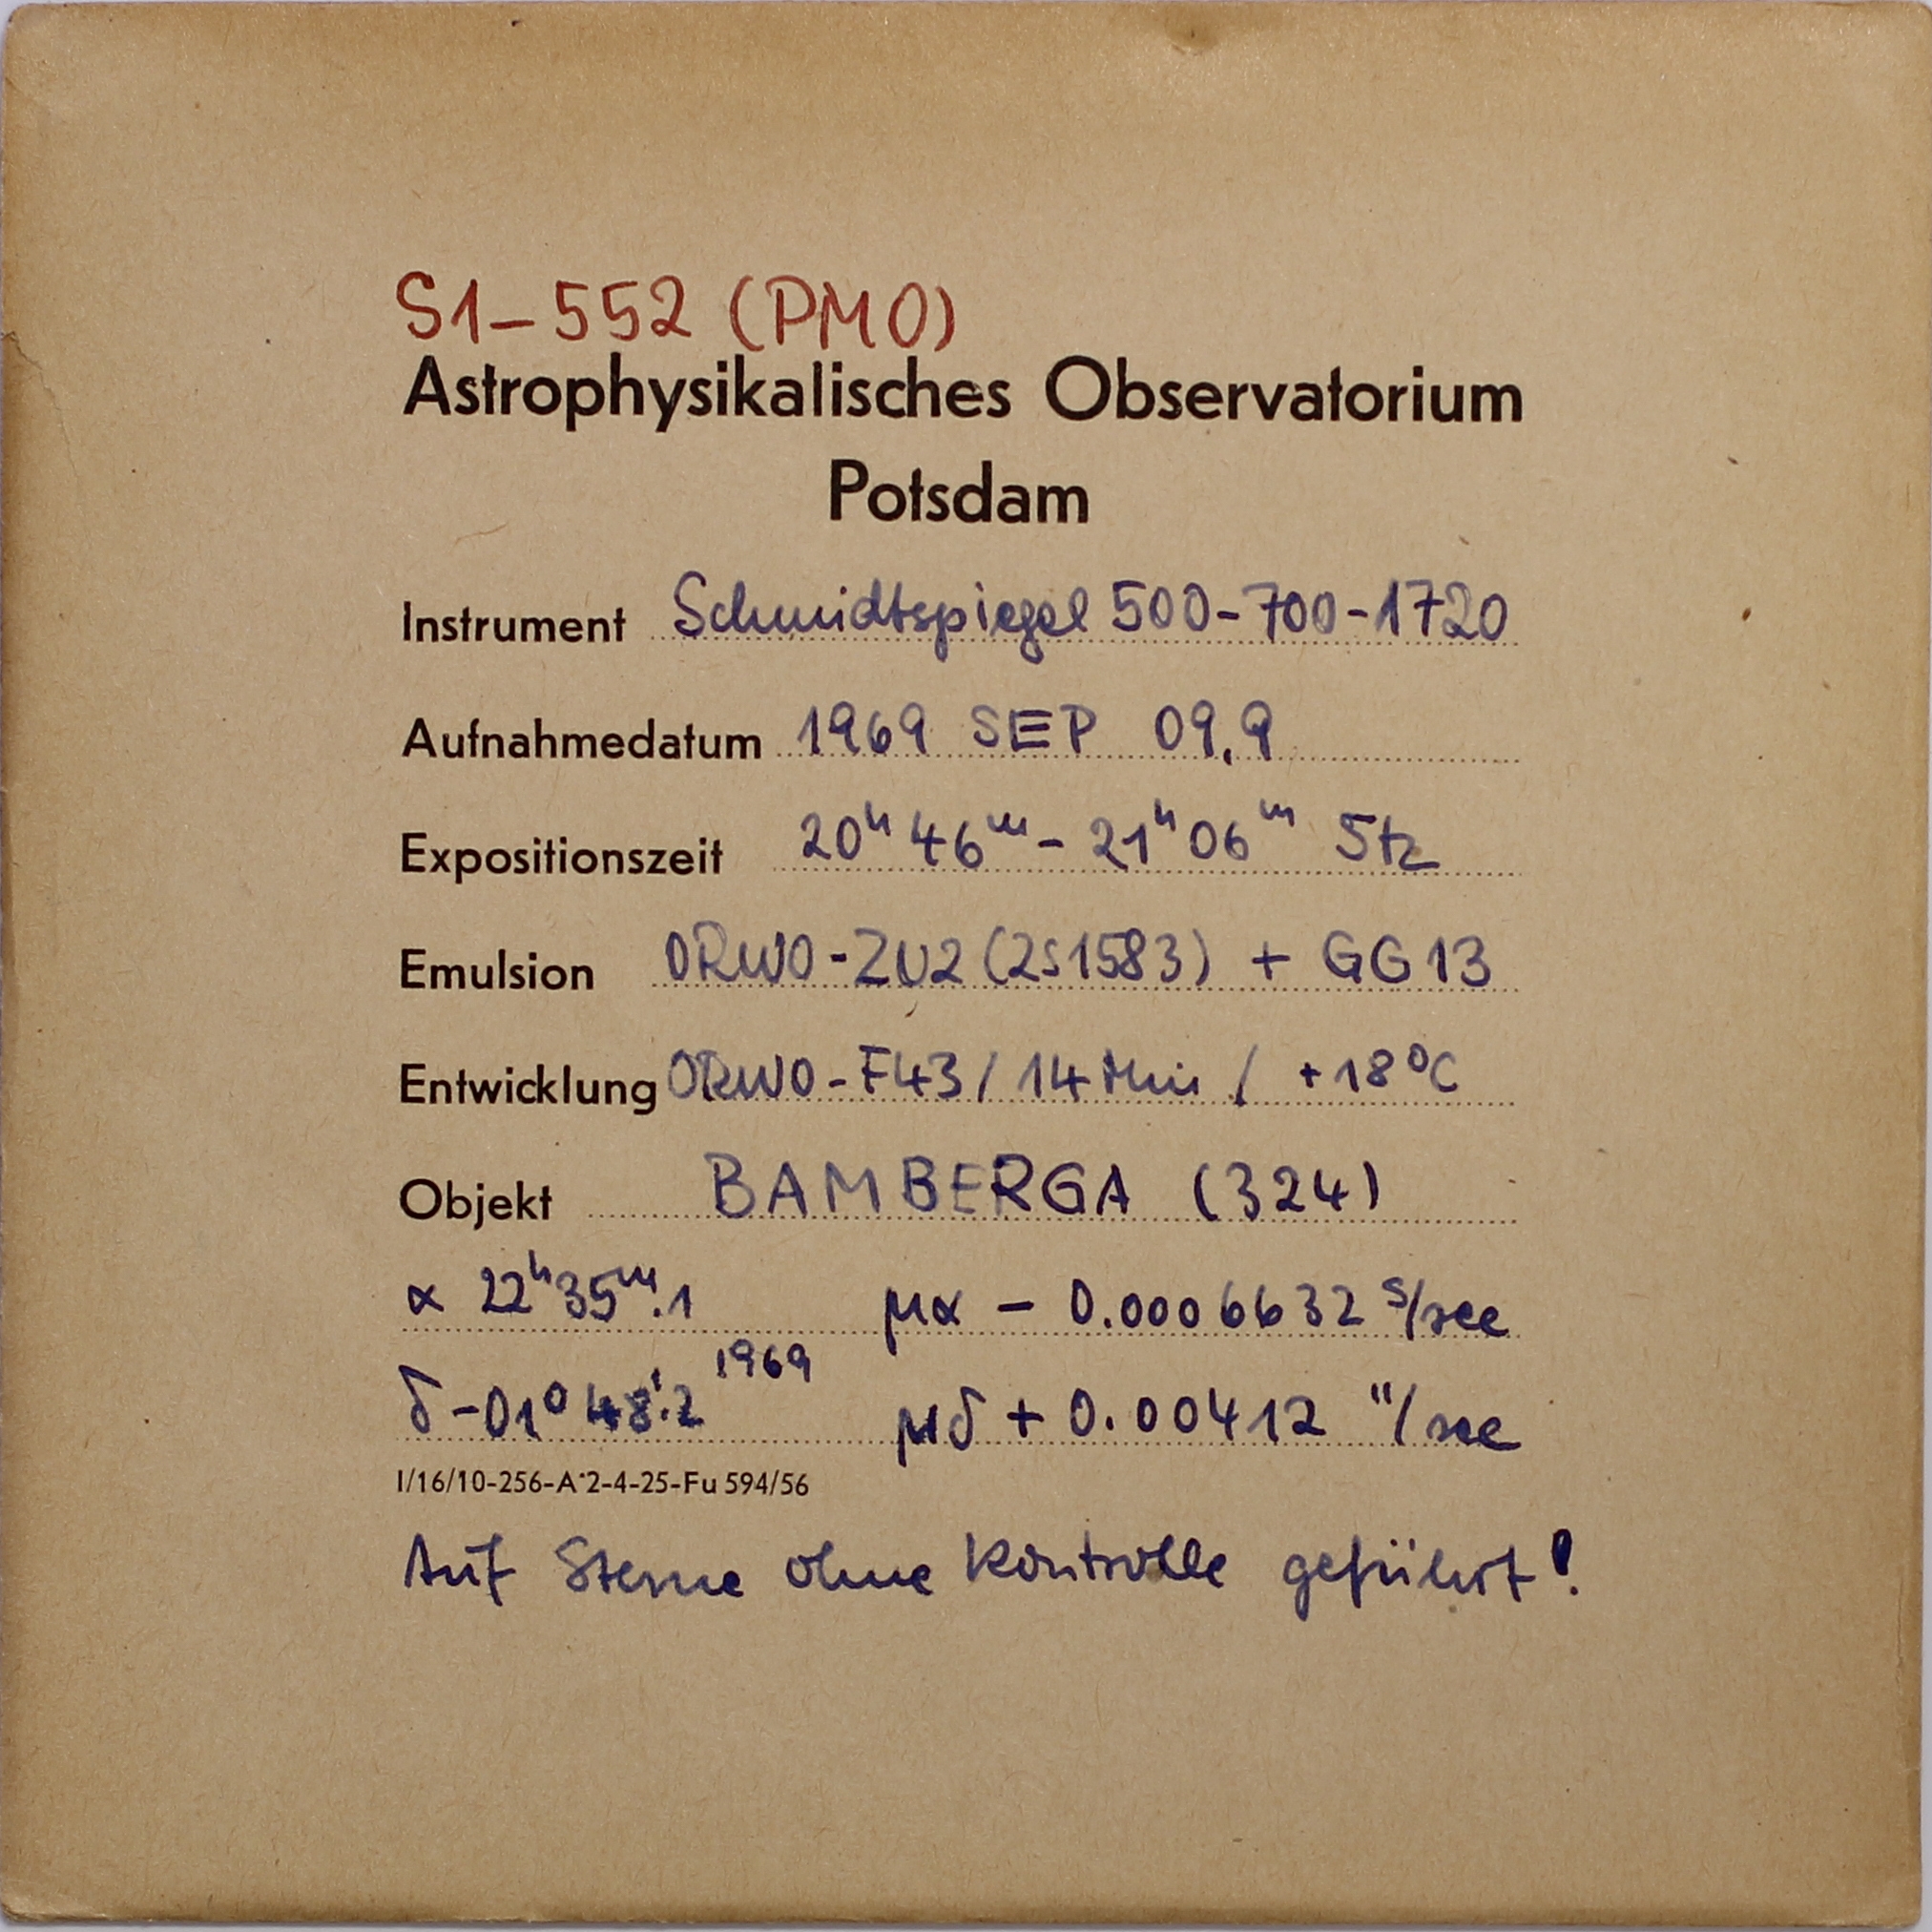 S1-552 (PMO)
Astrophysikalisches Observatorium
Potsdam
Instrument Schmidtspiegel 500-700-1720
Aufnahmedatum 1969 SEP 09.9
Expositionszeit 20ʰ 46ᵐ - 21ʰ 06ᵐ Stz
Emulsion ORWO-ZU2 (2S1583) + GG13
Entwicklung ORWO-F43 / 14 Min / +18°C
Objekt BAMBERGA (324)
α 22ʰ35ᵐ.1 μα - 0.0006632 ˢ/sec
δ -01° 48'.2 1969 μδ + 0.00412 "/sec
I/16/10-256-A·2-4-25-Fu 594/56
Auf Sterne ohne Kontrolle geführt!